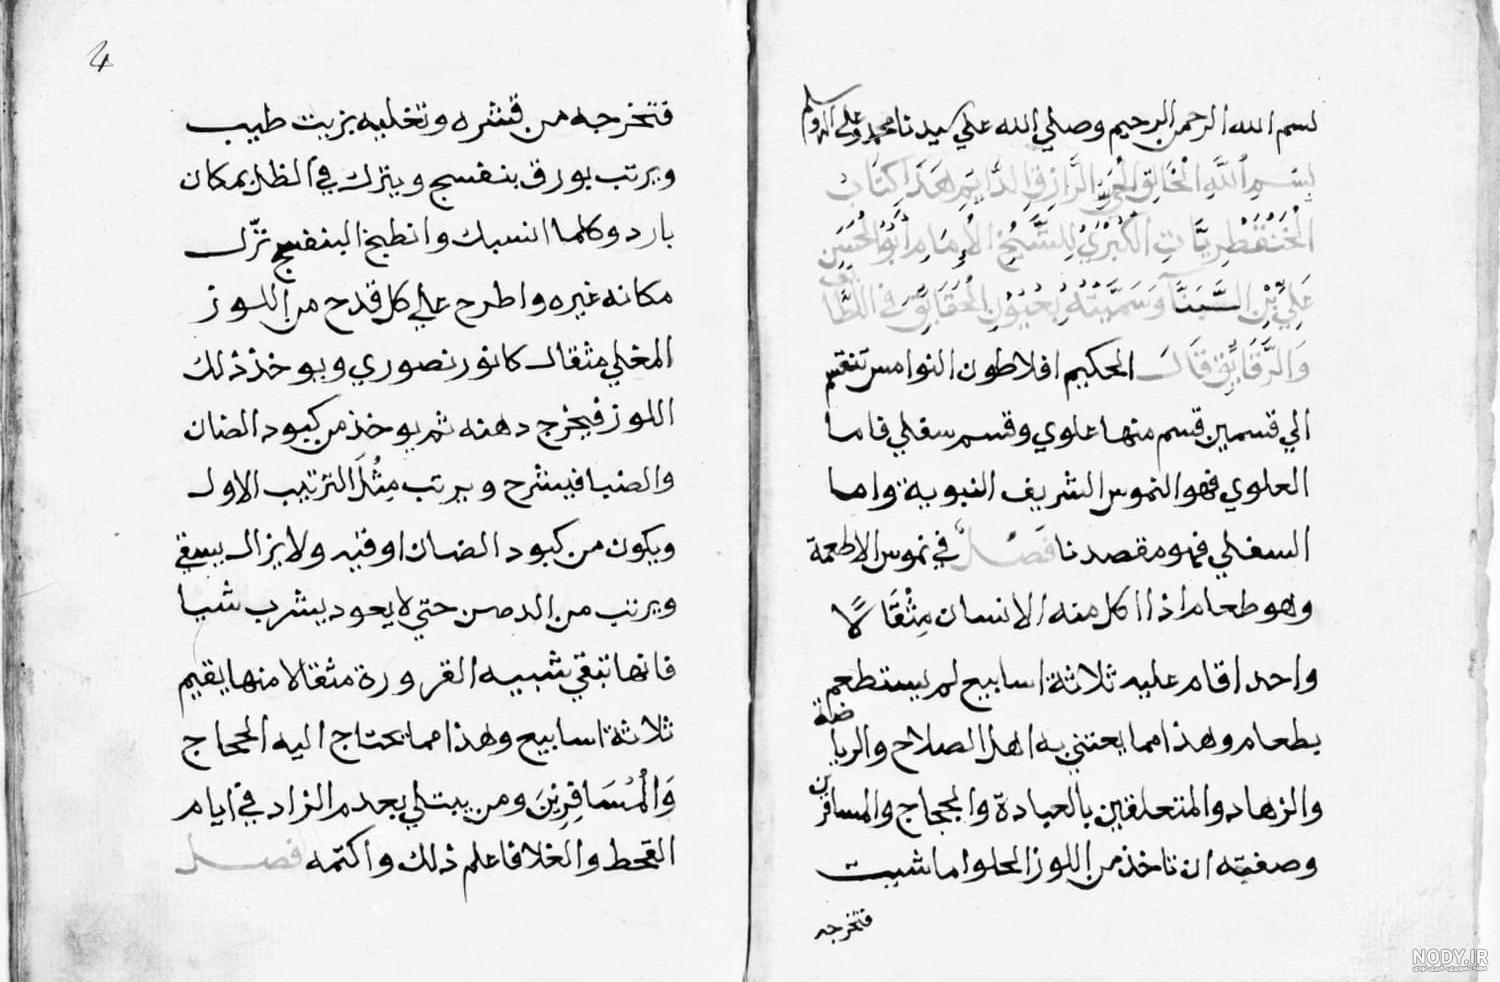 بسم الله الرحمن الرحيم وصلي الله علي سيدنا محمد وعلي اله وسلم
بِسْمِ اللَّهِ الْخَالِقِ الْحَيِّ الرَّازِقِ الدَّايِمِ هَذَا كِتَابُ
الْخَنْقَطْرِيَّاتِ الْكُبْرَيْ لِلشَّيْخِ الْإِمَامِ أَبُو الْحُسَيْنِ
عَلِيِّ بْنِ السَّبَنَّا وَسَمَّيْتُهُ بُعْيُوْنِ الْحَقَايِقَ فِي
وَالرَّقَايِقِ قَالَ الحكيم افلاطون النوامس تنقسم
الي قسمين قسم منها علوي وقسم سفلي فاما
العلوي فهو النموس الشريف النبوية واما
السفلي فهو مقصدنا فَصْلٌ في نموس الاطعمة
وهو طعام اذا اكل منه الانسان مِثْقَالًا
واحدا قام عليه ثلاثة اسابيع لم يستطعم
بطعام وهذا مما يعتني به اهل الصلاح والرياضة
والزهاد والمتعلقين بالعبادة والحجاج والمسافرين
وصفته ان تاخذ من اللوز الحلو ما شيت
فتخرجه
4
فتخرجه من قشره وتغليه بزيت طيب
ويرتب بورق بنفسج ويترك في الظل بمكان
بارد وكلما انسبك وانطبخ البنفسج نزّل
مكانه غيره واطرح علي كل قدح من اللوز
المغلي مثقال كافور نصوري ويوخذ ذلك
اللوز فيخرج دهنه ثم يوخذ من كبود الضان
والضبا فيشرح ويرتب مِثْلَ الترتيب الاول
ويكون من كبود الضان اوقيه ولا يزال يسقي
ويرتب من الدهن حتي لا يعود يشرب شيا
فانها تبقي شبيه القرورة مثقالا منها يقيم
ثلاثة اسابيع وهذا مما يحتاج اليه الحجاج
وَالْمُسَافِرِيْنَ ومن يبتلي بعدم الزاد في ايام
القحط والغلا فاعلم ذلك واكتمه فصل
NODY.IR